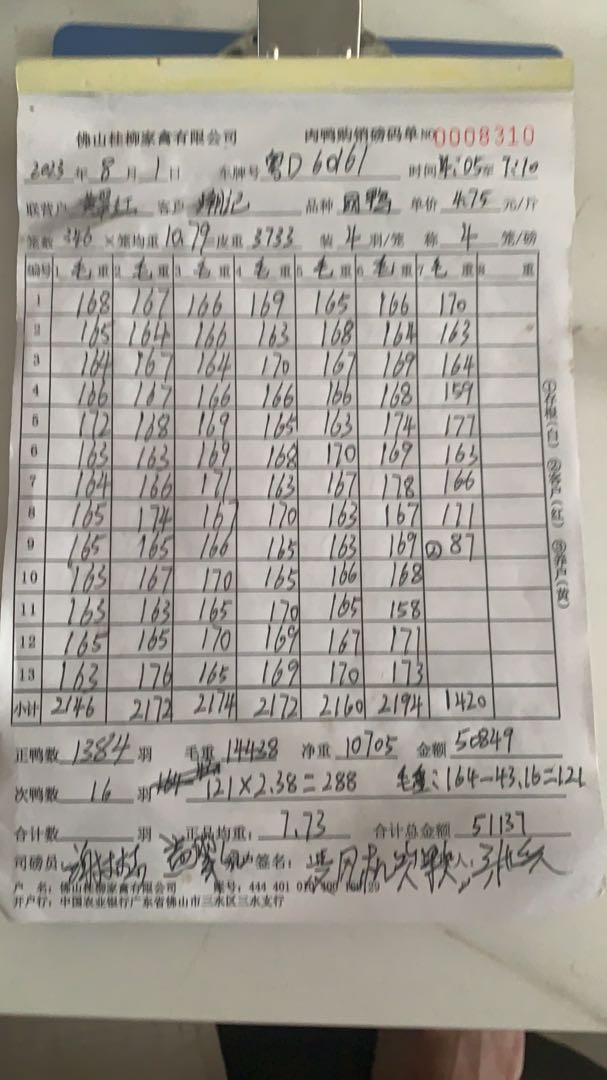 佛山桂柳家禽有限公司 肉鸭购销磅码单 NO 0008310
2023 年 8 月 1 日 车牌号 粤D60161 时间 4:05至 7:10
联营户 客户 翔记 品种 单价 4.75 元/斤
笼数 346 ×笼均重 10.79 皮重 3733 装 4 羽/笼 称 4 笼/磅
编号 1 毛 重 2 毛 重 3 毛 重 4 毛 重 5 毛 重 6 毛 重 7 毛 重 8 重
1 168 167 166 169 165 166 170
2 165 164 166 163 168 164 163
3 164 167 164 170 167 169 164
4 166 167 166 166 166 168 159
5 172 168 169 165 163 174 177
6 163 163 169 168 170 169 163
7 164 166 171 163 167 178 166
8 165 174 167 170 163 167 171
9 165 165 166 165 163 169 ② 87
10 163 167 170 165 166 168
11 163 163 165 170 165 158
12 165 165 170 169 167 171
13 163 176 165 169 170 173
小计 2146 2172 2174 2172 2160 2194 1420
①存根(白) ②客户(红) ③养户(黄)
正鸭数 1384 羽 毛重 14438 净重 10705 金额 50849
次鸭数 16 羽 121×2.38=288 毛重:164-43.16=121
合计数 羽 正品均重: 7.73 合计总金额 51137
司磅员: 签名:
户 名:佛山桂柳家禽有限公司 账号:444 401 010 400
开户行:中国农业银行广东省佛山市三水区三水支行